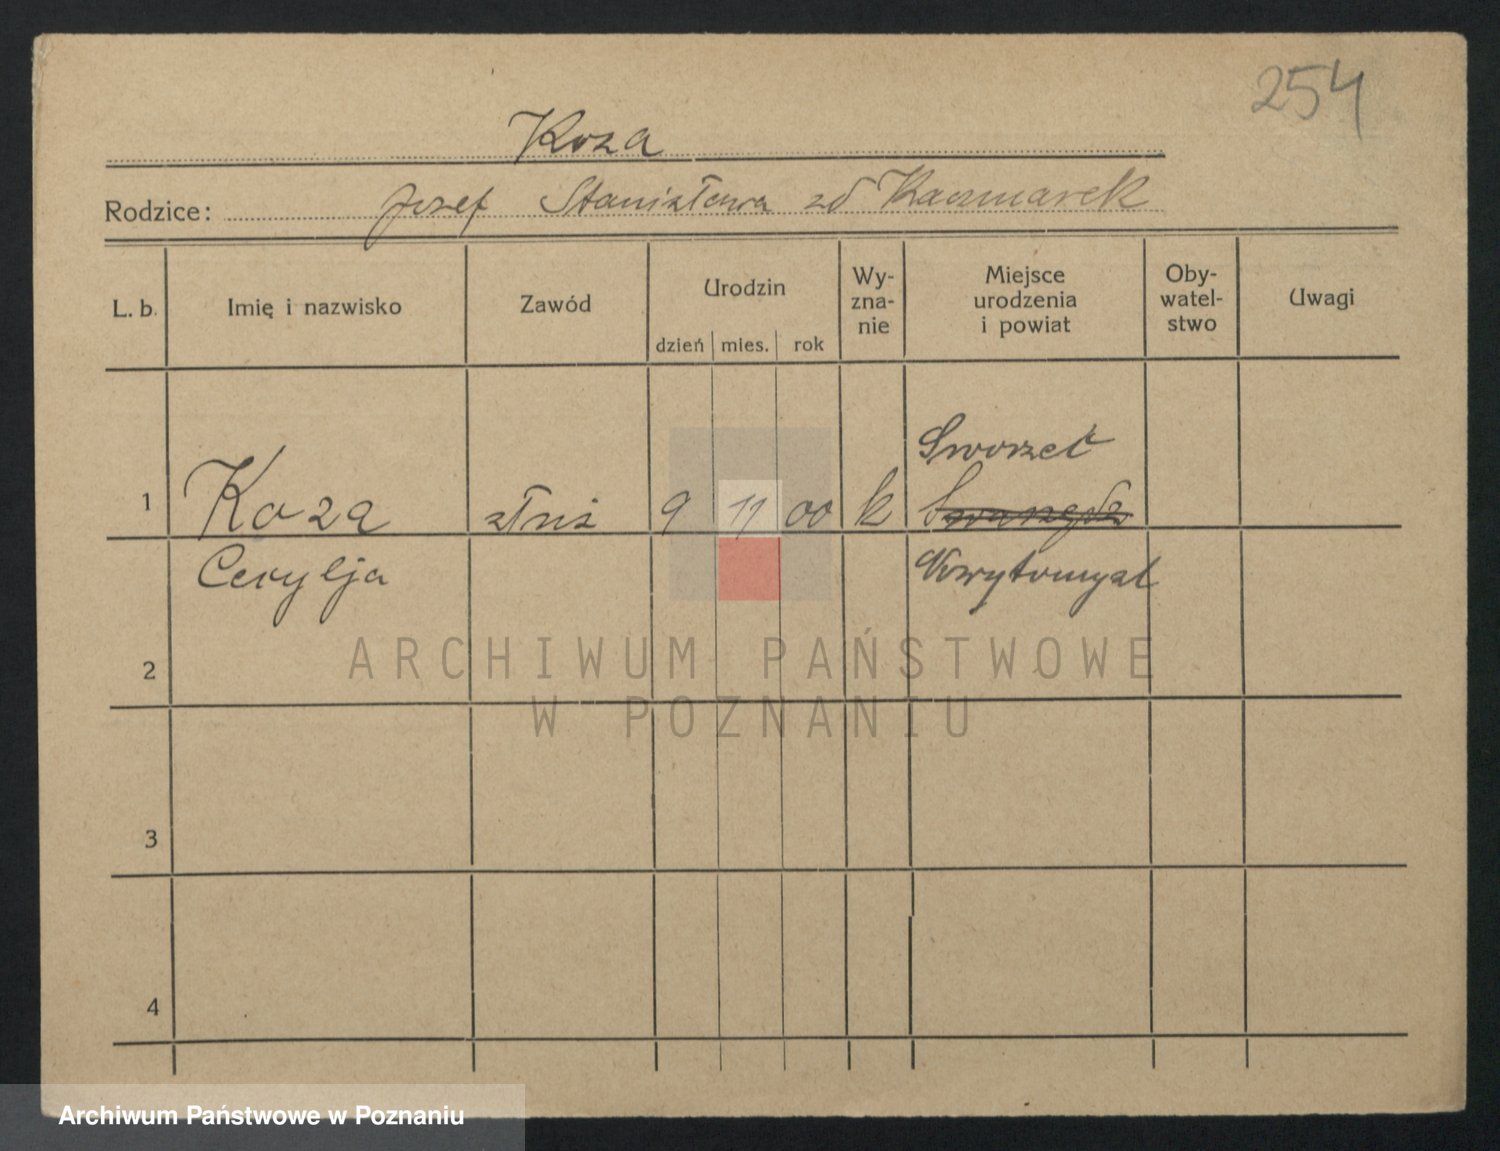 254
Koza
Rodzice: Jozef Stanisława zd Kaczmarek
L. b. Imię i nazwisko Zawód Urodzin dzień mies. rok Wy-zna-nie Miejsce urodzenia i powiat Oby-watel-stwo Uwagi
Sworzec
1 Koza 9 11 00 k
Cecylja Nowytomysl
2
3
4
ARCHIWUM PAŃSTWOWE
W POZNANIU
Archiwum Państwowe w Poznaniu